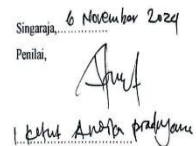 Singaraja, 6 November 2024
Penilai,
I Ketut Andika pradnyana